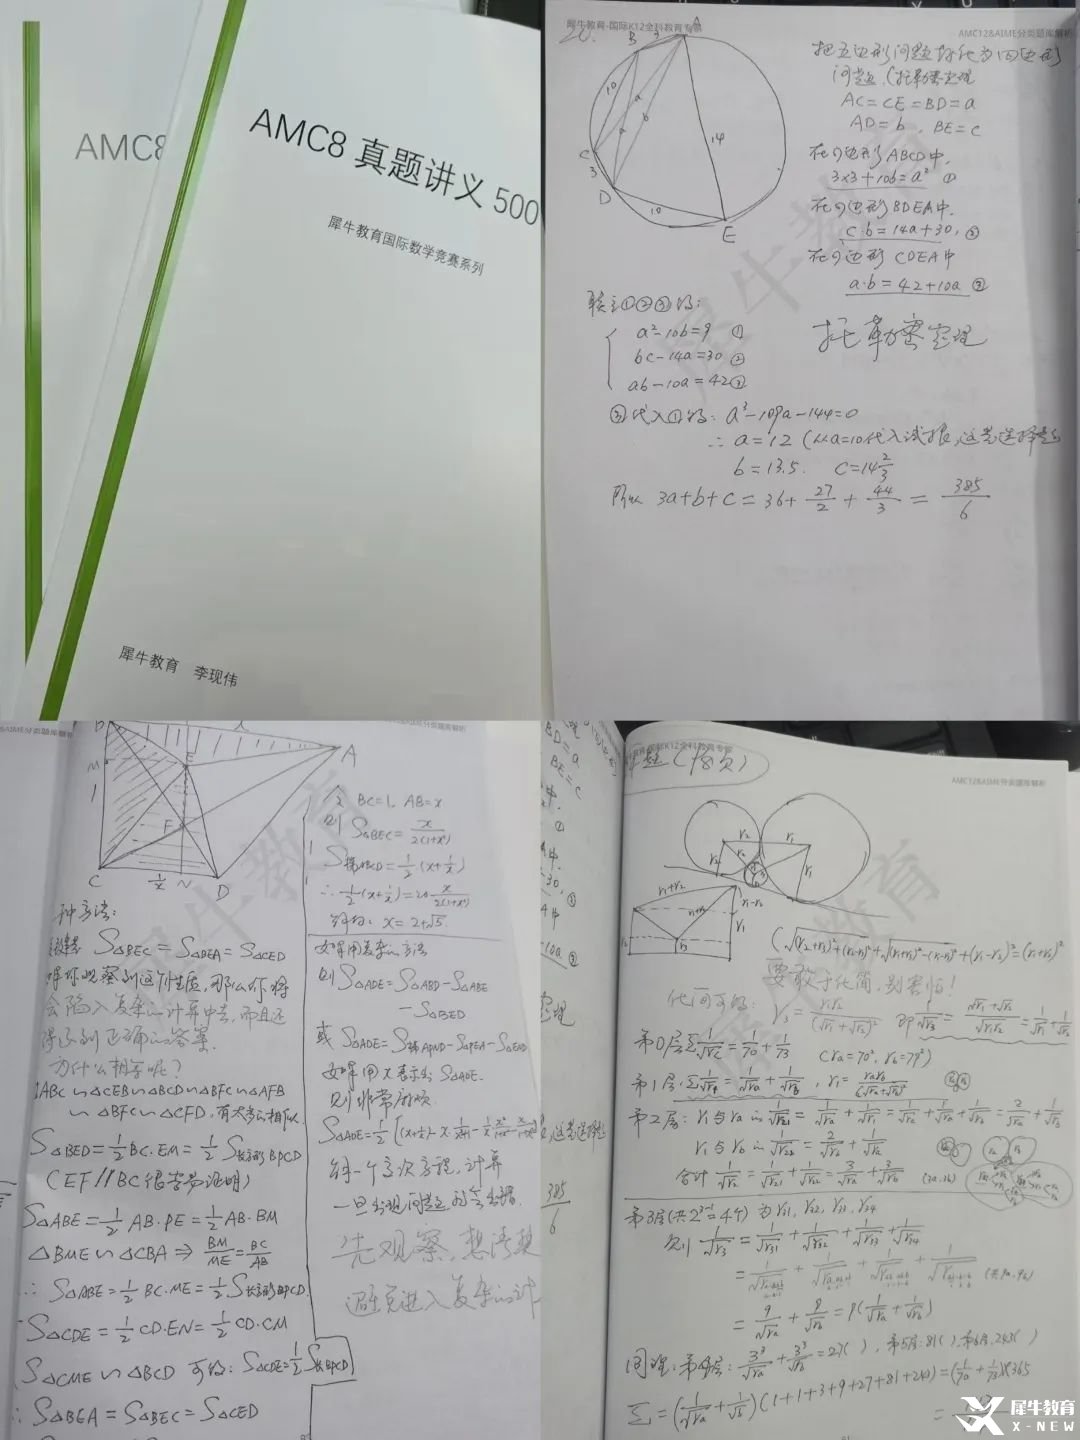 AMC8
AMC8 真题讲义 500
犀牛教育国际数学竞赛系列
犀牛教育 李现伟
犀牛教育-国际K12全科教育专家
AMC12&AIME分类题库解析
20.
B 3 A
10
a
a b
14
C
3
D
10
E
把五边形问题转化为四边形
问题（托勒密定理
AC=CE=BD=a
AD=b, BE=c
在四边形ABCD中,
3×3+10b=a² ①
在四边形BDEA中,
c·b=14a+30, ②
在四边形CDEA中
a·b=42+10a ③
联立①②③得:
a²-10b=9 ①
bc-14a=30 ②
ab-10a=42 ③
托勒密定理
③代入①得: a³-109a-144=0
∴ a=12 (从a=10代入试根,这是选择题
b=13.5. c=14 2/3
所以 3a+b+c=36+27/2+44/3=385/6
AMC12&AIME分类题库解析
B x A
M E
1 F
C 1/x N D
令 BC=1, AB=x
则 S△BEC=x/2(1+x²)
S梯ABCD=1/2(x+1/x)
∴ 1/2(x+1/x)=20·x/2(1+x²)
解得: x=2+√5.
种方法:
S△BEC=S△BEA=S△CED
观察到这个性质, 那么你将
会陷入复杂的计算中去, 而且还
得不到正确的答案.
为什么相等呢?
△ABC∽△CEB∽△BCD∽△BFC∽△AFB
∽△BFC∽△CFD. 有太多的相似.
S△BED=1/2BC·EM=1/2S长方形BPCD
(EF//BC很容易证明)
S△ABE=1/2AB·PE=1/2AB·BM
△BME∽△CBA ⇒ BM/ME=BC/AB
∴ S△ABE=1/2BC·ME=1/2S长方形BPCD.
S△CDE=1/2CD·EN=1/2CD·CM
S△CME∽△BCD 可得: S△CDE=1/2S长BPCD
∴ S△BEA=S△BEC=S△CED
如果用复杂的方法
则 S△ADE=S△ABD-S△ABE
-S△BED
或 S△ADE=S梯APND-S△PEA-S△END
如果用x表示出S△ADE.
则非常麻烦
解一个高次方程, 计算
一旦出现问题, 就会出错.
先观察, 想清楚
避免进入复杂的计
BD=a
BE=c
385/6
国际K12全科教育专家
AMC12&AIME分类题库解析
r₂ r₁
r₁+r₂
r₁-r₂
r₁
r₃
(√(r₂+r₃)²-(r₂-r₃)²+√(r₁+r₃)²-(r₁-r₃)²)²+(r₁-r₂)²=(r₁+r₂)²
要敢于化简, 别害怕!
化简可得: r₃=r₁r₂/(√r₁+√r₂)² 即 1/√r₃=(√r₁+√r₂)/√r₁r₂=1/√r₁+1/√r₂
第0层 Σ1/√r=1/70+1/73
第1层: Σ1/√r₁=1/√ra+1/√rb, r₁=rarb/(√ra+√rb)²
第2层: r₁与ra的 1/√r₂₁=1/√ra+1/√r₁=1/√ra+1/√ra+1/√rb=2/√ra+1/√rb
r₁与rb的 1/√r₂₂=2/√rb+1/√ra
合计 1/√r₂=1/√r₂₁+1/√r₂₂=3/√ra+3/√rb (3a, 3b)
第3层(共2³⁻¹=4个) 为 r₃₁, r₃₂, r₃₃, r₃₄
则 1/√r₃=1/√r₃₁+1/√r₃₂+1/√r₃₃+1/√r₃₄
(共9a, 9b)
=9/√ra+9/√rb=9(1/√ra+1/√rb)
同理: 第4层: 3³/√ra+3³/√rb=27( ), 第5层: 81( ), 第6层, 243( )
Σ=(1/√ra+1/√rb)(1+1+3+9+27+81+243)=(1/70+1/73)×365
犀牛教育
X-NEW